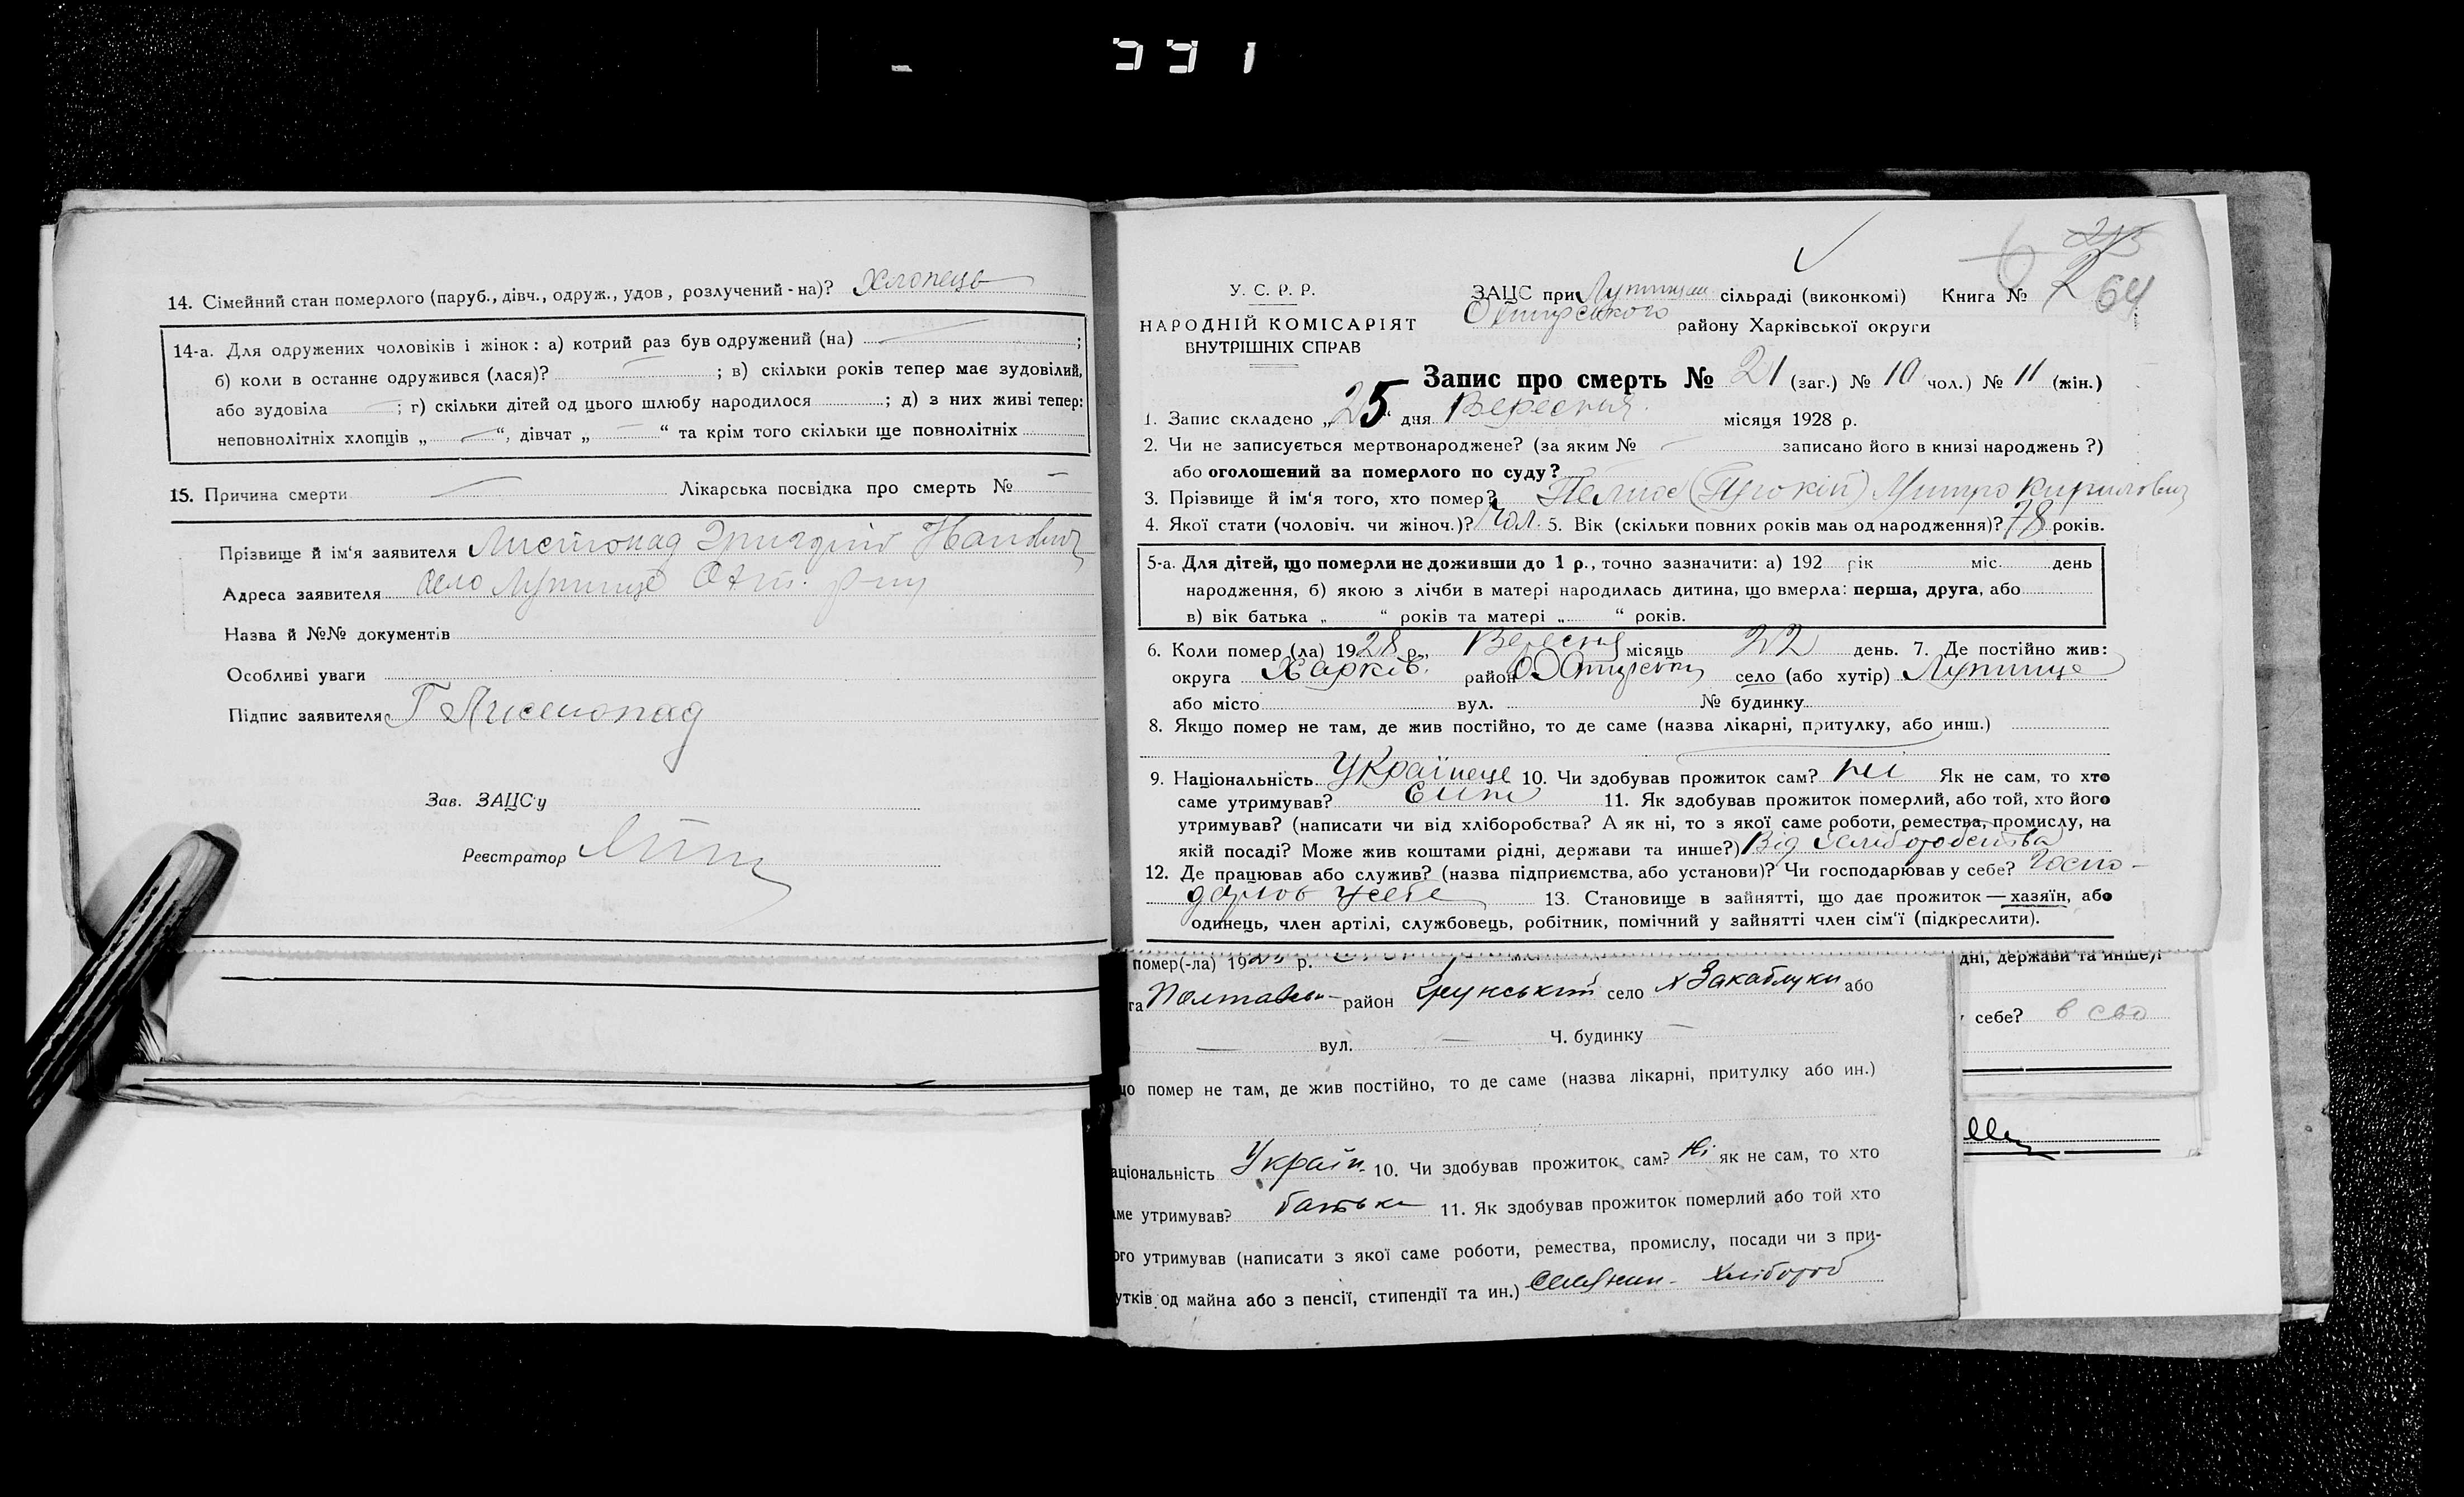 14. Сімейний стан померлого (паруб., дівч., одруж., удов, розлучений - на)? Хлопець
14-а. Для одружених чоловіків і жінок: а) котрий раз був одружений (на) ;
б) коли в останнє одружився (лася)? ; в) скільки років тепер має зудовілий,
або зудовіла ; г) скільки дітей од цього шлюбу народилося ; д) з них живі тепер:
неповнолітніх хлопців „ “, дівчат „ “ та крім того скільки ще повнолітніх
15. Причина смерти Лікарська посвідка про смерть №
Прізвище й ім'я заявителя Листопад Григорій
Адреса заявителя село
Назва й №№ документів
Особливі уваги
Підпис заявителя Г Листопад
Зав. ЗАЦС'у
Реєстратор
64
У. С. Р. Р.
НАРОДНІЙ КОМІСАРІЯТ
ВНУТРІШНІХ СПРАВ
ЗАЦС при сільраді (виконкомі) Книга № 2
району Харківської округи
Запис про смерть № 21 (заг.) № 10 чол.) № 11 (жін.)
1. Запис складено „25“ дня Вересня місяця 1928 р.
2. Чи не записується мертвонароджене? (за яким № записано його в книзі народжень ?)
або оголошений за померлого по суду?
3. Прізвище й ім'я того, хто помер? Митро Кирилович
4. Якої стати (чоловіч. чи жіноч.)? Чол. 5. Вік (скільки повних років мав од народження)? 78 років.
5-а. Для дітей, що померли не доживши до 1 р., точно зазначити: а) 192 рік міс. день
народження, б) якою з лічби в матері народилась дитина, що вмерла: перша, друга, або
в) вік батька „ “ років та матері „ “ років.
6. Коли помер (ла) 1928 р., Вересня місяць 22 день. 7. Де постійно жив:
округа Харків. район село (або хутір)
або місто вул. № будинку
8. Якщо помер не там, де жив постійно, то де саме (назва лікарні, притулку, або инш.)
9. Національність Українець 10. Чи здобував прожиток сам? ні Як не сам, то хто
саме утримував? син 11. Як здобував прожиток померлий, або той, хто його
утримував? (написати чи від хліборобства? А як ні, то з якої саме роботи, ремества, промислу, на
якій посаді? Може жив коштами рідні, держави та инше?) Від хліборобства
12. Де працював або служив? (назва підприємства, або установи)? Чи господарював у себе? Госпо-
дарював у себе 13. Становище в зайнятті, що дає прожиток — хазяїн, або
одинець, член артілі, службовець, робітник, помічний у зайнятті член сім'ї (підкреслити).
помер(-ла) 19 р.
га район село х Закаблуки або
вул. Ч. будинку
що помер не там, де жив постійно, то де саме (назва лікарні, притулку або ин.)
аціональність Україн. 10. Чи здобував прожиток сам? Ні як не сам, то хто
аме утримував? батьки 11. Як здобував прожиток померлий або той хто
ого утримував (написати з якої саме роботи, ремества, промислу, посади чи з при-
утків од майна або з пенсії, стипендії та ин.) Селянин- хлібороб
дні, держави та инше).
себе? в сво